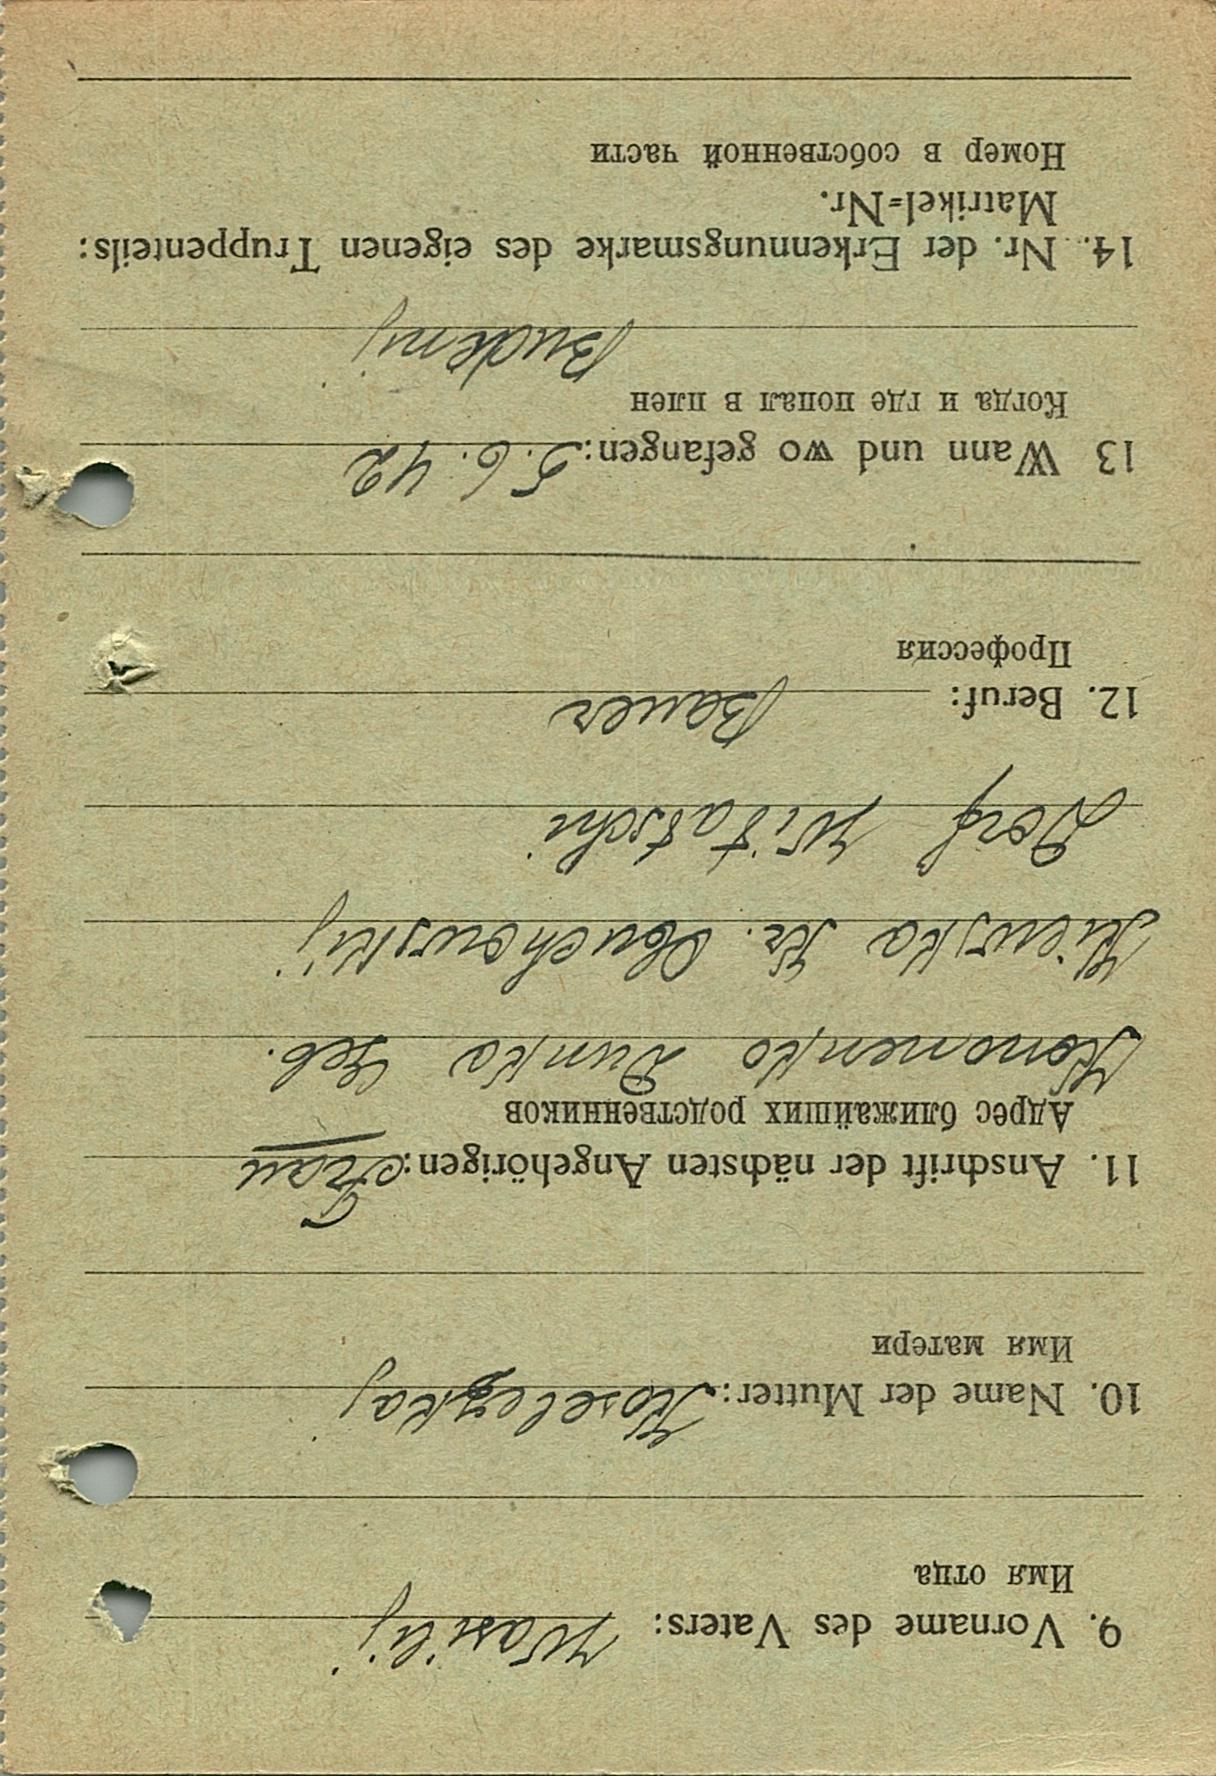 9. Vorname des Vaters: Wasilij
Имя отца
10. Name der Mutter: Koselezkaj
Имя матери
11. Anschrift der nächsten Angehörigen: Frau
Адрес ближайших родственников
Kononenko Dunka Geb.
Kiewska Kr. Obuchowskij
Dorf Witatschi
12. Beruf: Bauer
Профессия
13 Wann und wo gefangen: 5. 6. 42
Когда и где попал в плен
Budenij
14. Nr. der Erkennungsmarke des eigenen Truppenteils:
Matrikel=Nr.
Номер в собственной части